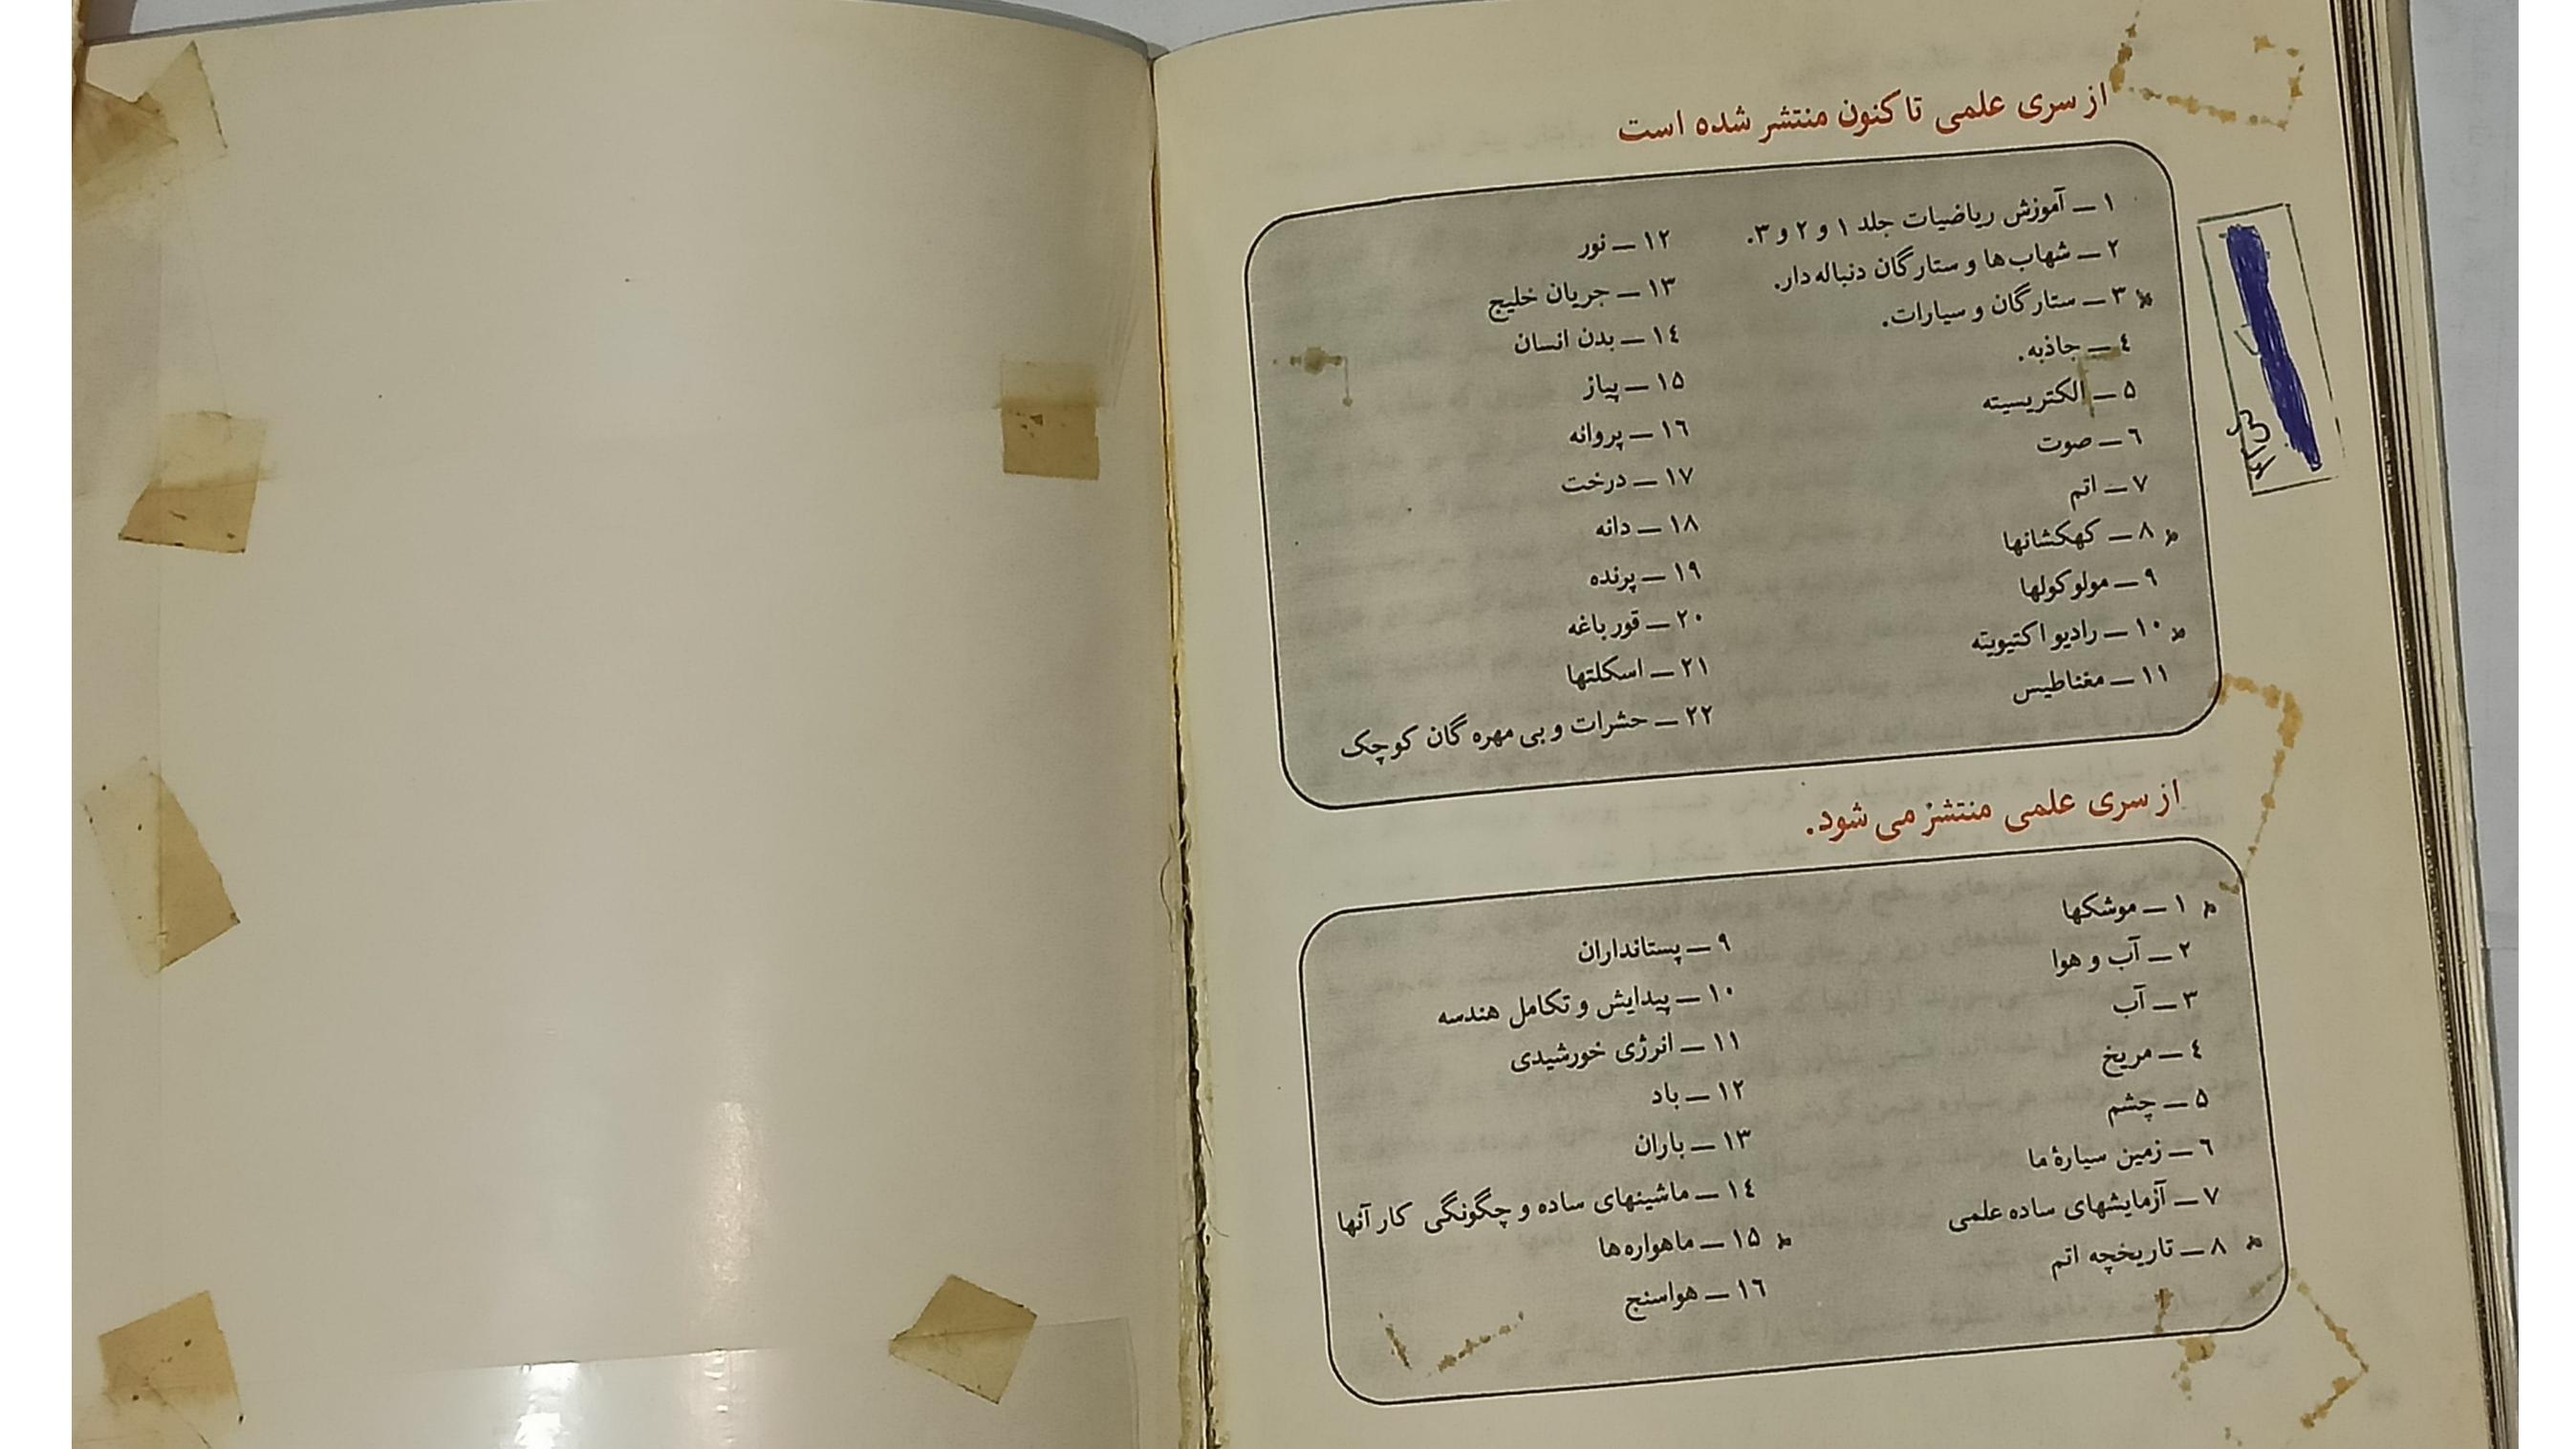 از سری علمی تا کنون منتشر شده است
۱ ــ آموزش ریاضیات جلد ۱ و ۲ و ۳.
۲ ــ شهاب‌ها و ستارگان دنباله‌دار.
۳ ــ ستارگان و سیارات.
٤ ــ جاذبه.
۵ ــ الکتریسیته
٦ ــ صوت
۷ ــ اتم
۸ ــ کهکشانها
۹ ــ مولوکولها
۱۰ ــ رادیو اکتیویته
۱۱ ــ مغناطیس
۱۲ ــ نور
۱۳ ــ جریان خلیج
۱٤ ــ بدن انسان
۱۵ ــ پیاز
۱٦ ــ پروانه
۱۷ ــ درخت
۱۸ ــ دانه
۱۹ ــ پرنده
۲۰ ــ قورباغه
۲۱ ــ اسکلتها
۲۲ ــ حشرات و بی مهره گان کوچک
از سری علمی منتشر می شود.
۱ ــ موشکها
۲ ــ آب و هوا
۳ ــ آب
٤ ــ مریخ
۵ ــ چشم
٦ ــ زمین سیارهٔ ما
۷ ــ آزمایشهای ساده علمی
۸ ــ تاریخچه اتم
۹ ــ پستانداران
۱۰ ــ پیدایش و تکامل هندسه
۱۱ ــ انرژی خورشیدی
۱۲ ــ باد
۱۳ ــ باران
۱٤ ــ ماشینهای ساده و چگونگی کار آنها
۱۵ ــ ماهواره‌ها
۱٦ ــ هواسنج